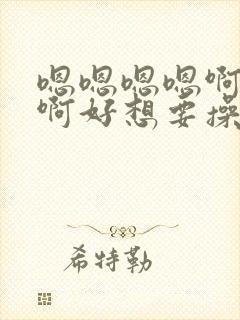 嗯嗯嗯嗯啊
啊好想要操
希特勒